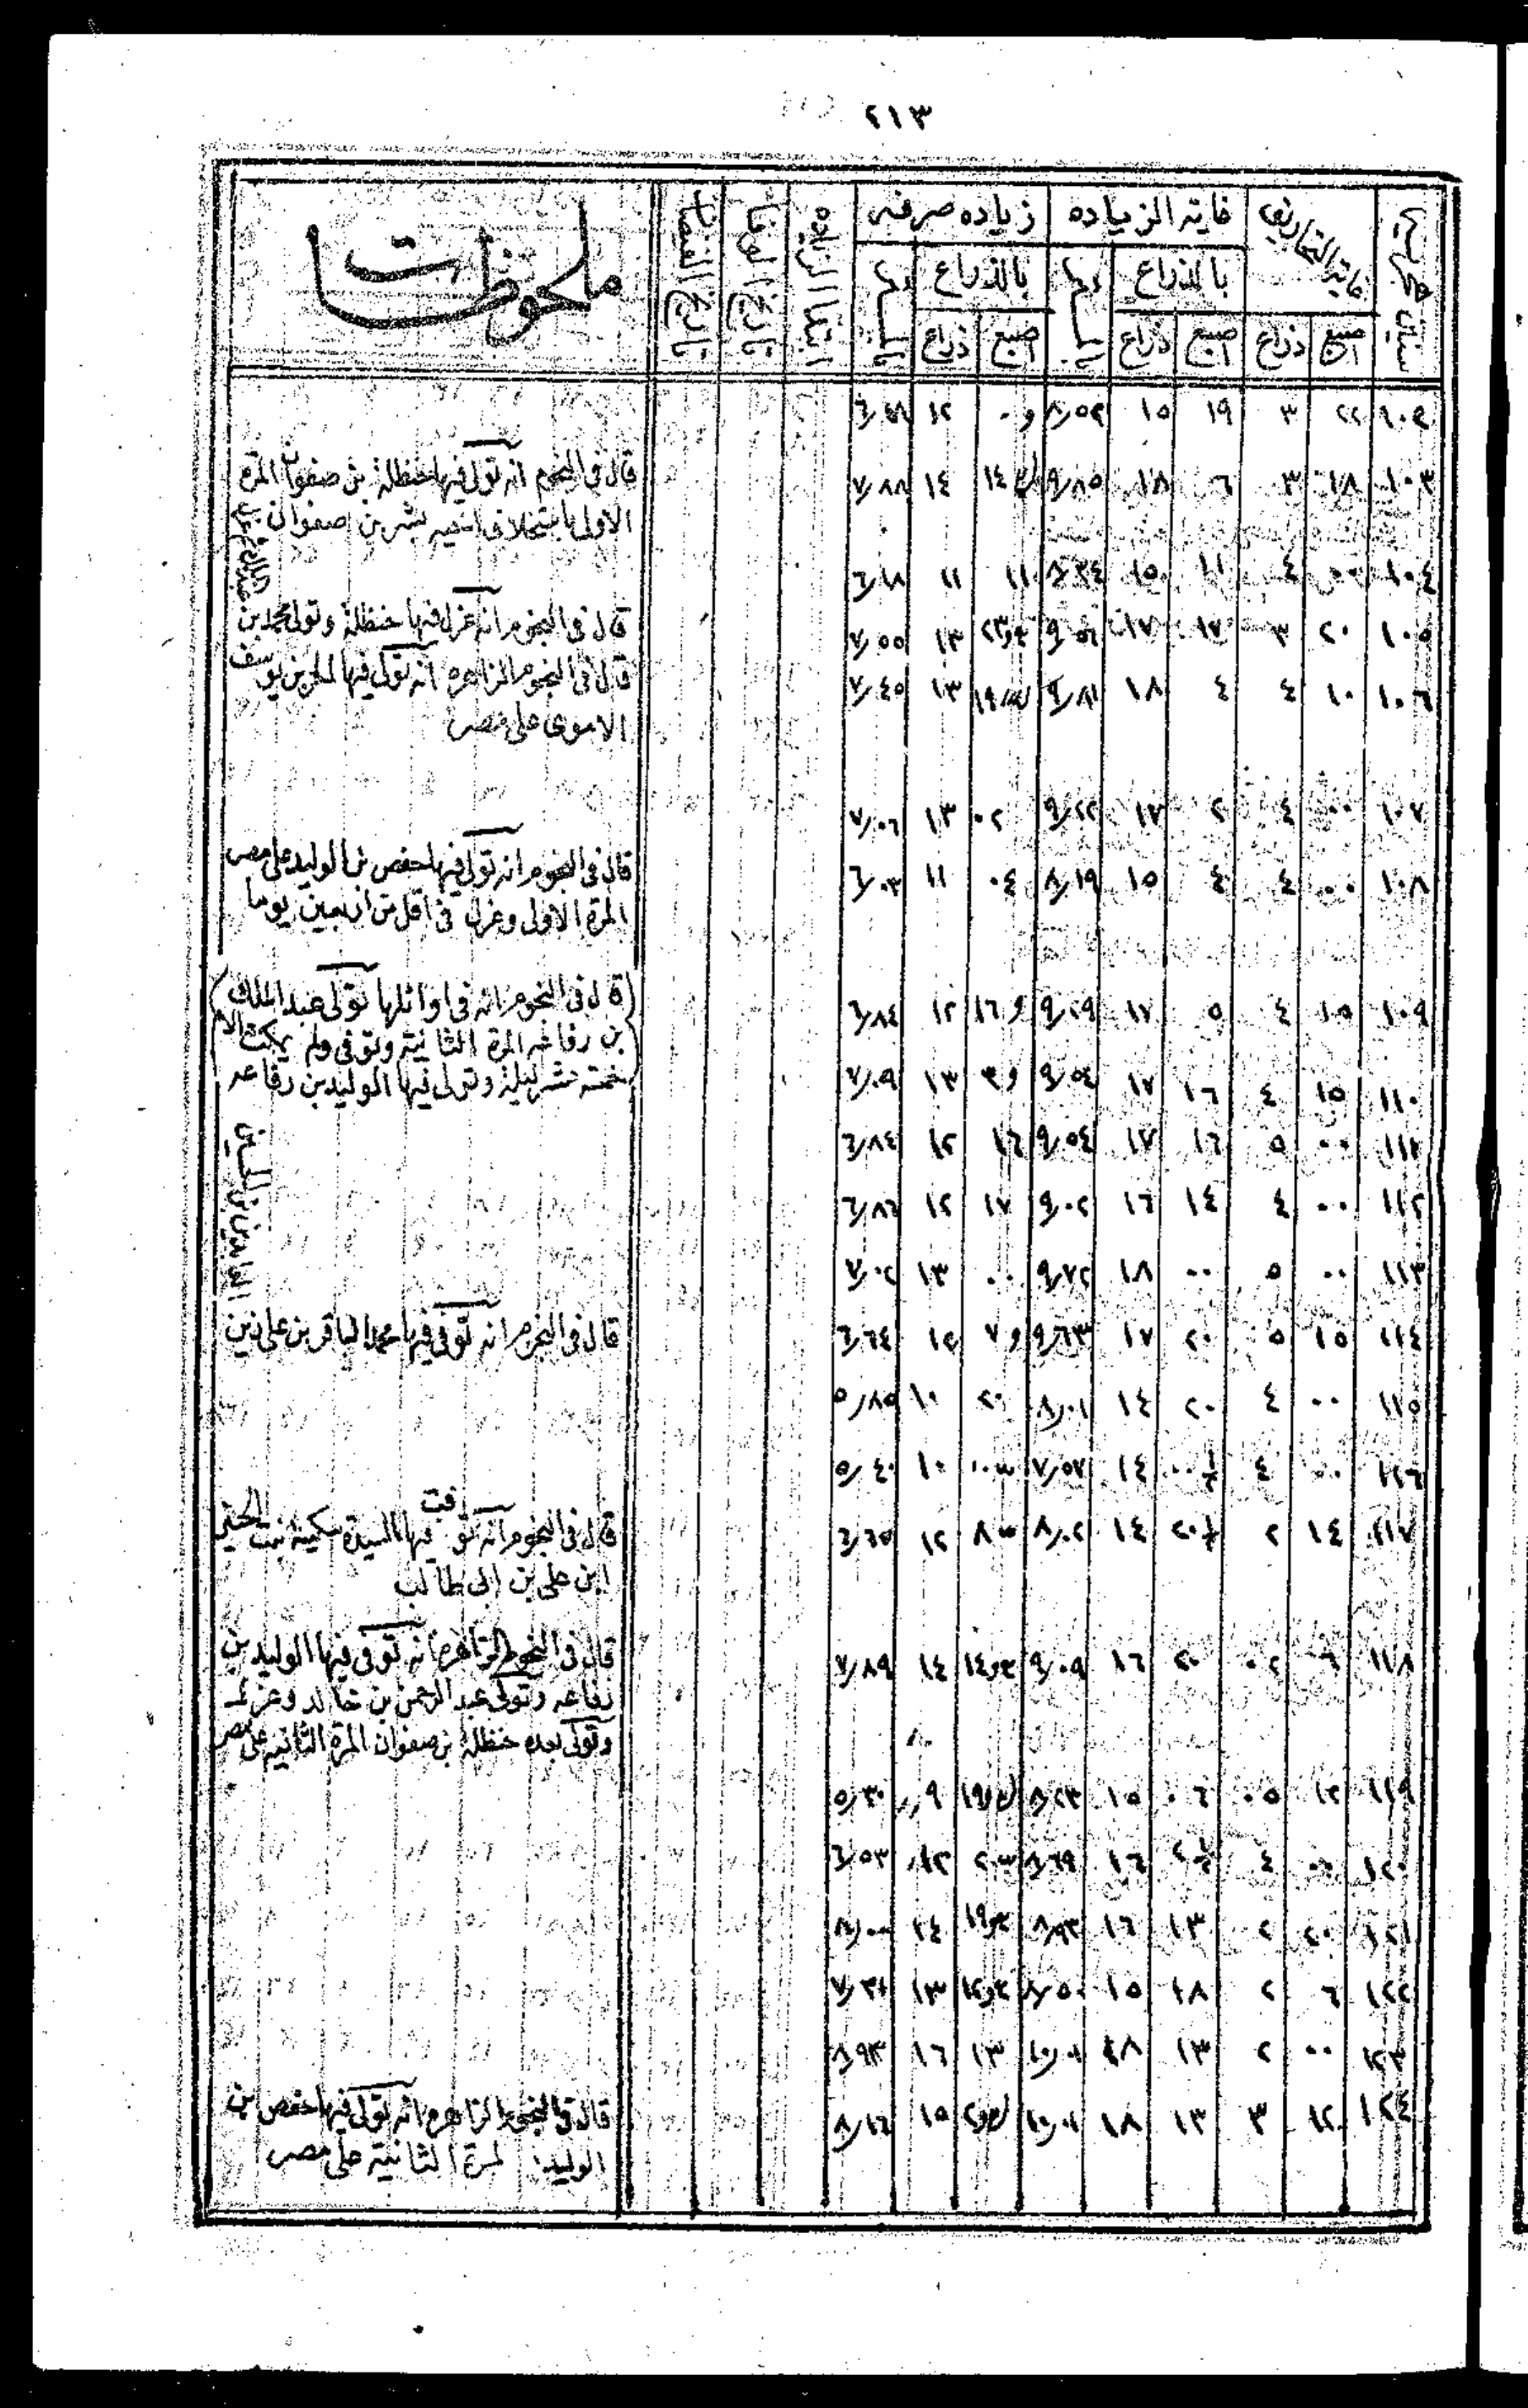 ٢١٣
سنين هجريه | غاية التحاريق | غاية الزياده | زياده صرفه | ابتدا الزياده | تاريخ الوفا | تاريخ النقصان | ملحوظات
بالذراع | بالذراع
اصبع | ذراع | اصبع | ذراع | اصبع | ذراع
١٠٢ | ٢٢ | ٣ | ١٩ | ١٥ | ٨٫٥٢ | ١٢
١٠٣ | ١٨ | ٣ | ٦ | ١٨ | ٩٫٨٥ | ١٤ | ١٤ | ٧٫٨٨
قال فى النجوم انه تولى فيها حنظلة بن صفوان المرة
الاولى باستخلاف اخيه بشر بن صفوان
١٠٤ | ٤ | ١١ | ١٥ | ٨٫٣٤ | ١١ | ١١ | ٦٫١٨
١٠٥ | ٢٠ | ٣ | ١٧ | ١٧ | ٩٫٥٦ | ١٣ | ٧٫٥٥
قال فى النجوم انه عزل فيها حنظلة وتولى محمد بن
عبد الملك
١٠٦ | ١٠ | ٤ | ٤ | ١٨ | ٩٫٨١ | ١٩ | ١٣ | ٧٫٤٥
قال فى النجوم الزاهره انه تولى فيها الحر بن يوسف
الاموى على مصر
١٠٧ | ٠٠ | ٤ | ٢ | ١٧ | ٩٫٢٢ | ٠٢ | ١٣ | ٧٫٠٦
١٠٨ | ٠٠ | ٤ | ٤ | ١٥ | ٨٫١٩ | ٠٤ | ١١ | ٦٫٠٣
قال فى النجوم انه تولى فيها حفص بن الوليد على مصر
المرة الاولى وعزل فى اقل من اربعين يوما
١٠٩ | ١٥ | ٤ | ٥ | ١٧ | ٩٫٢٩ | ١٦ | ١٢ | ٦٫٨٤
قال فى النجوم انه فى اوائلها تولى عبد الملك
بن رفاعه المرة الثانية وتوفى ولم يمكث الا
خمسة عشر ليلة وتولى فيها الوليد بن رفاعه
١١٠ | ١٥ | ٤ | ١٦ | ١٧ | ٩٫٥٤ | ١٣ | ٧٫٠٩
١١١ | ٠٠ | ٥ | ١٦ | ١٧ | ٩٫٥٤ | ١٦ | ١٢ | ٦٫٨٤
١١٢ | ٠٠ | ٤ | ١٤ | ١٦ | ٩٫٠٢ | ١٧ | ١٢ | ٦٫٨٦
١١٣ | ٠٠ | ٥ | ٠٠ | ١٨ | ٩٫٧٢ | ٠٠ | ١٣ | ٧٫٠٢
١١٤ | ١٥ | ٥ | ٢٠ | ١٧ | ٩٫٦٣ | ١٢ | ٦٫٦٤
قال فى النجوم انه توفى فيها محمد الباقر بن على زين
العابدين بن الحسين
١١٥ | ٠٠ | ٤ | ٢٠ | ١٤ | ٨٫٠١ | ٢٠ | ١٠ | ٥٫٨٥
١١٦ | ٠٠ | ٤ | ١٤ | ٧٫٥٧ | ١٠ | ٥٫٤٠
١١٧ | ١٤ | ٢ | ١٤ | ٨٫٠٢ | ١٢
قال فى النجوم انه توفيت فيها السيدة سكينة بنت الحسين
ابن على بن ابى طالب
١١٨ | ٦ | ٠٢ | ٢٠ | ١٦ | ٩٫٠٩ | ١٤ | ٧٫٨٩
قال فى النجوم الزاهرة انه توفى فيها الوليد بن
رفاعه وتولى عبد الرحمن بن خالد وعزل
وتولى بعده حنظلة بن صفوان المرة الثانيه على مصر
١١٩ | ١٢ | ٠٥ | ٠٦ | ١٥ | ٨٫٢٣ | ٩ | ٥٫٣٠
١٢٠ | ٤ | ١٦ | ٨٫٦٩ | ١٢ | ٦٫٥٣
١٢١ | ٢٠ | ٢ | ١٣ | ١٦ | ٨٫٩٣ | ١٤ | ٨٫٠٠
١٢٢ | ٦ | ٢ | ١٨ | ١٥ | ٨٫٥٠ | ١٣
١٢٣ | ٠٠ | ٢ | ١٣ | ١٨ | ١٠٫٠١ | ١٣ | ١٦ | ٨٫٩٣
١٢٤ | ١٢ | ٣ | ١٣ | ١٨ | ١٠٫٠١ | ١٥ | ٨٫١٦
قال فى النجوم الزاهره انه تولى فيها حفص بن
الوليد المرة الثانية على مصر